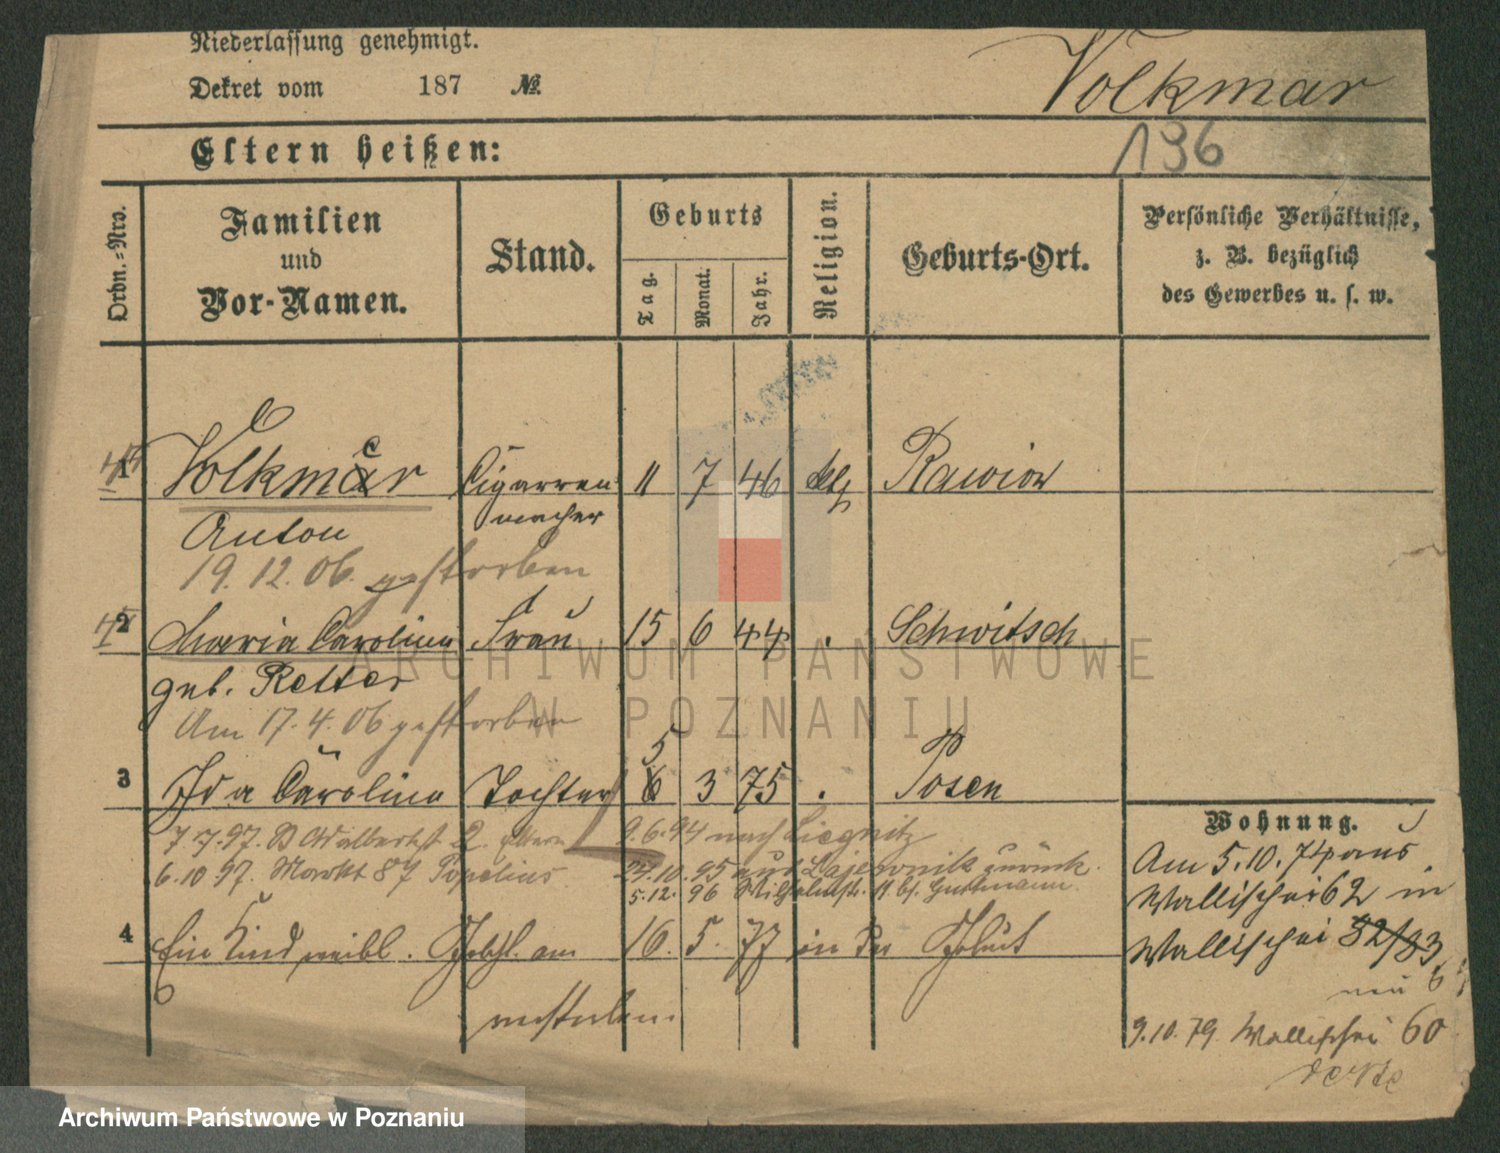 Niederlassung genehmigt.
Dekret vom 187 No.
Volkmar
196
Eltern heißen:
Ordn.-Nro.
Familien und Vor-Namen.
Stand.
Geburts
Tag. Monat. Jahr.
Religion.
Geburts-Ort.
Persönliche Verhältnisse, z. B. bezüglich des Gewerbes u. s. w.
1 Volkmer Cigarren 11 7 46 ktl Rawicz
Anton macher
19.12.06. gestorben
2 Maria Carolina Frau 15 6 44 . Schwitsch
geb. Retter
Am 17.4.06 gestorben
3 Ida Carolina Tochter 5 3 75 . Posen
7.7.97. 2. Eltern 9.6.94 nach Liegnitz
6.10 97. Markt 87 24.10.95 aus zurück.
5.12. 96 Wilhelmstr.
4 Ein Kind weibl. Geschl. am 16. 5. 77 in der Geburt
verstorben.
Wohnung.
Am 5.10.74 aus
Wallischei 62 in
Wallischei 82/83
neu 6
9.10.79. Wallischei 60
ARCHIWUM PAŃSTWOWE
W POZNANIU
Archiwum Państwowe w Poznaniu